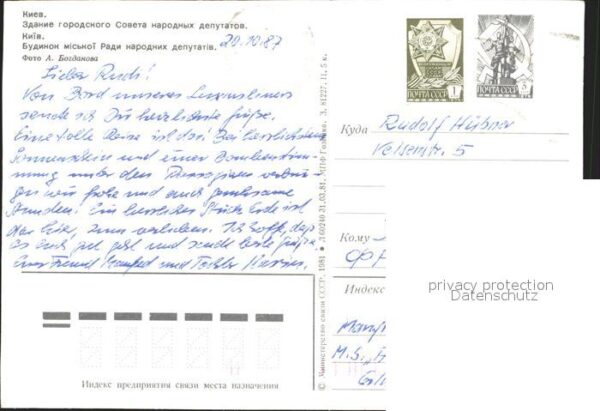 Киев.
Здание городского Совета народных депутатов.
Київ.
Будинок міської Ради народних депутатів.
Фото А. Богданова
20.10.87
Lieber Rudi!
Von Bord unseres Luxusliners
sende ich Dir herzlichste Grüße.
Eine tolle Reise ist das! Bei herrlichem
Sonnenschein und einer Bombenstim-
mung unter den Passagieren verbrin-
gen wir frohe und auch gemeinsame
Stunden! Ein herrliches Stück Erde ist
das hier, zum verlieben. Ich hoffe, daß
es Euch gut geht und sende beste Grüße
Euer Freund Manfred und Tochter
Индекс предприятия связи места назначения
© Министерство связи СССР, 1981 Л 60240 31.03.81. МПФ Гознака. З. 81227. Ц. 5 к.
ПОЧТА СССР 1
ПОЧТА СССР 5
Куда
Rudolf Hübner
5
Кому
Индекс
M.S.
privacy protection
Datenschutz